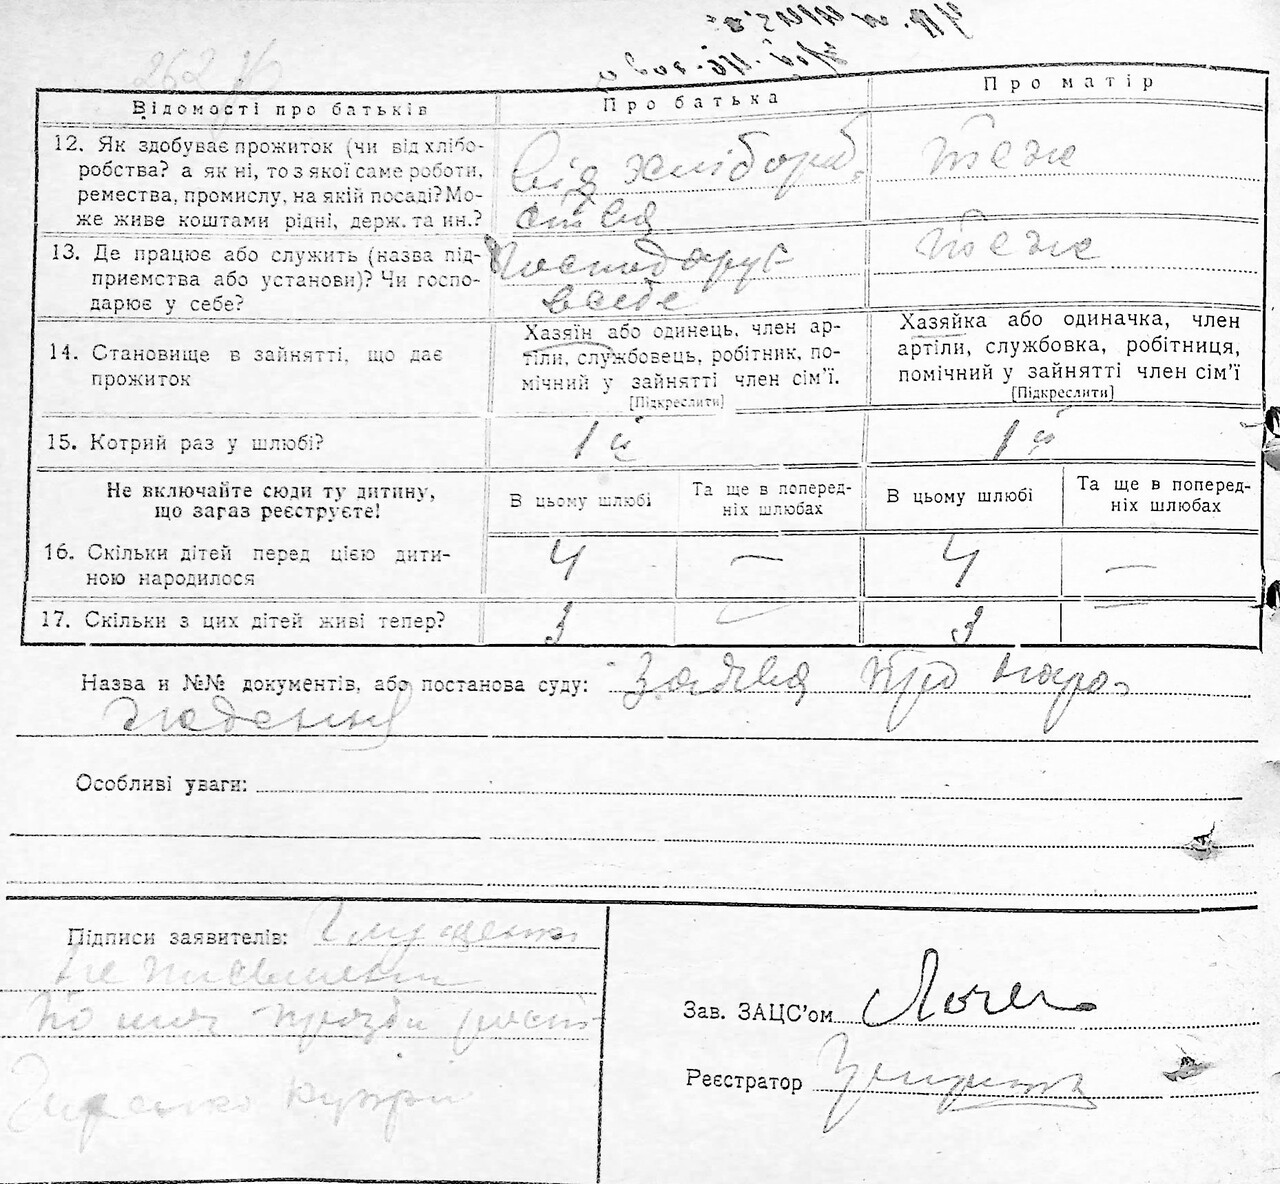 Відомості про батьків
Про батька
Про матір
12. Як здобуває прожиток (чи від хлібо-
робства? а як ні, то з якої саме роботи,
ремества, промислу, на якій посаді? Мо-
же живе коштами рідні, держ. та ин.?
від хлібороб
ства
теж
13. Де працює або служить (назва під-
приємства або установи)? Чи госпо-
дарює у себе?
Господарує
в себе
теж
14. Становище в зайнятті, що дає
прожиток
Хазяїн або одинець, член ар-
тіли, службовець, робітник, по-
мічний у зайнятті член сім'ї.
[Підкреслити]
Хазяйка або одиначка, член
артіли, службовка, робітниця,
помічний у зайнятті член сім'ї
[Підкреслити]
15. Котрий раз у шлюбі?
1й
1й
Не включайте сюди ту дитину,
що зараз реєструєте!
В цьому шлюбі
Та ще в поперед-
ніх шлюбах
В цьому шлюбі
Та ще в поперед-
ніх шлюбах
16. Скільки дітей перед цією дити-
ною народилося
4
—
4
—
17. Скільки з цих дітей живі тепер?
3
—
3
—
Назва и №№ документів, або постанова суду: Заява про наро-
дження
Особливі уваги:
Підписи заявителів:
не письменни
Зав. ЗАЦС'ом
Реєстратор